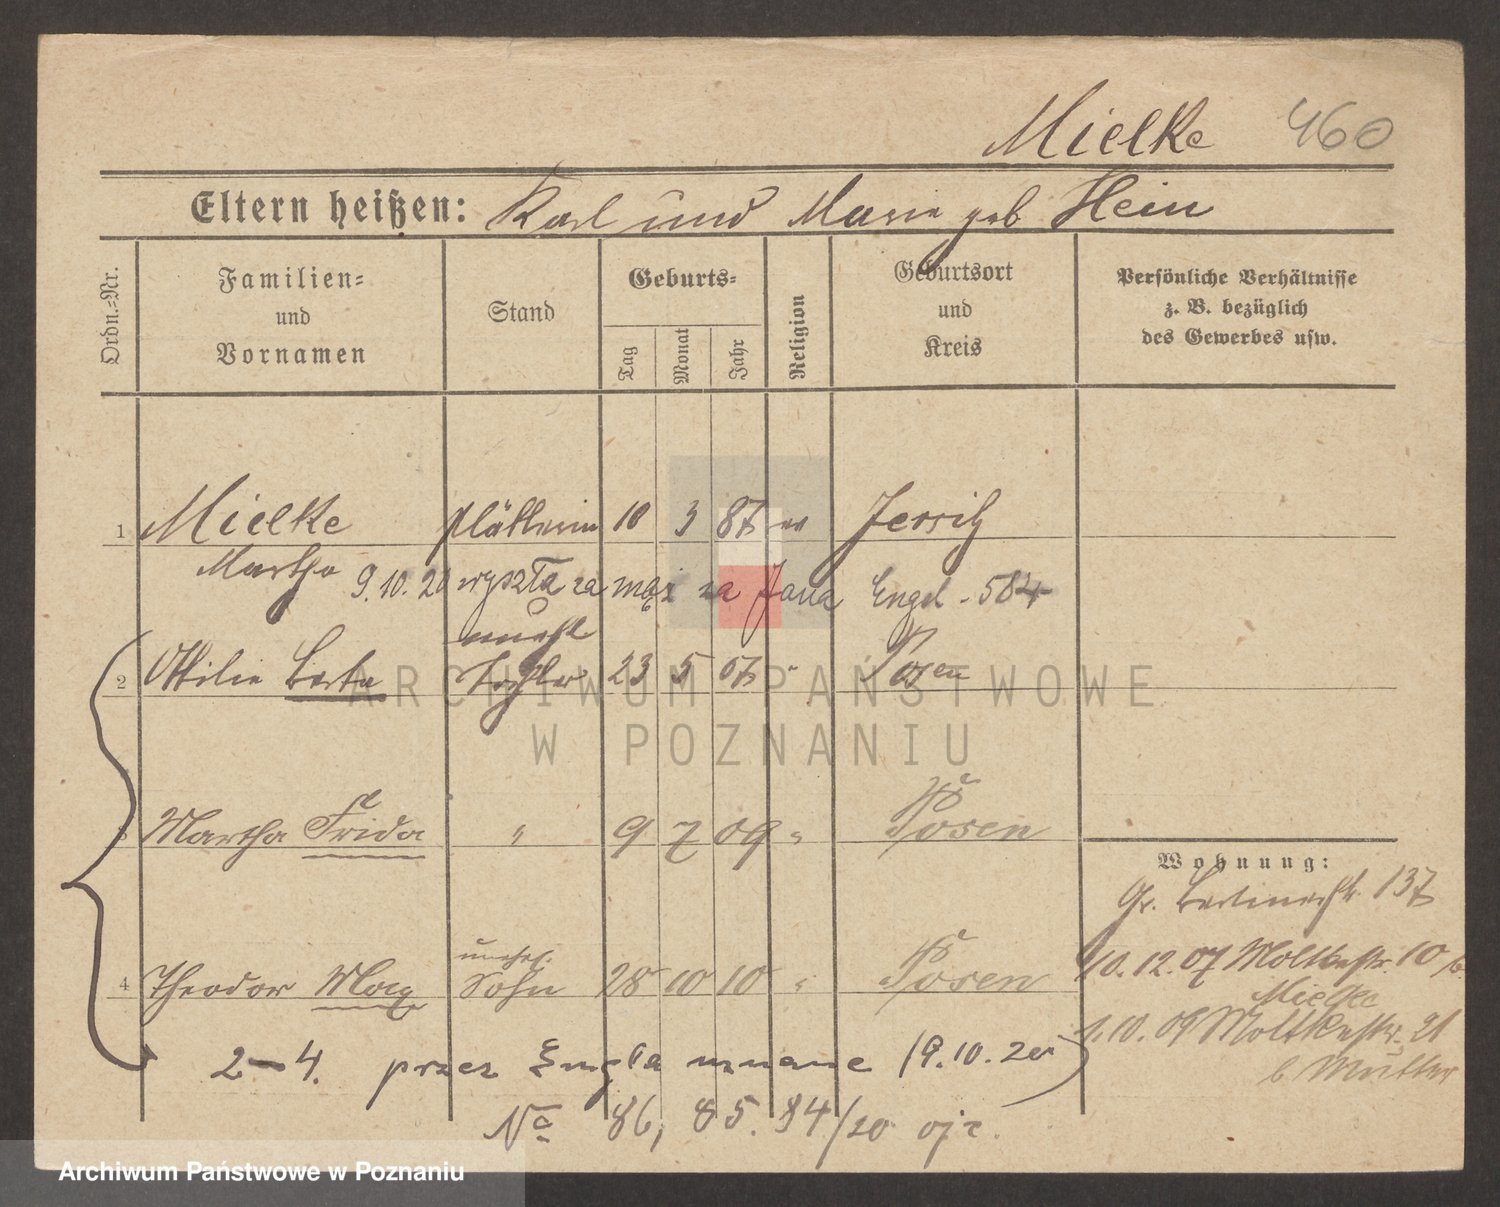 Mielke 460
Eltern heißen: Karl und Marie geb Hein
Ordn.=Nr.
Familien=
und
Vornamen
Stand
Geburts=
Tag
Monat
Jahr
Religion
Geburtsort
und
Kreis
Persönliche Verhältnisse
z. B. bezüglich
des Gewerbes usw.
1 Mielke Plätterin 10 3 87 ev Jersitz
Martha 9.10.20 wyszła za mąż za Jana Engel - 584
unehl
2 Ottilie Berta Tochter 23 5 07 " Posen
3 Martha Frida " 9 7 09 " Posen
Wohnung:
Gr. Berlinerstr. 137
10.12.07 Moltkestr. 10 b.
Mielke
unehel.
4 Theodor Max Sohn 28 10 10 " Posen
1.10.09 Moltkestr. 21
b Mutter
2-4. przez Engla uznane (9.10.20)
No 86, 85. 84/20
ARCHIWUM PAŃSTWOWE
W POZNANIU
Archiwum Państwowe w Poznaniu